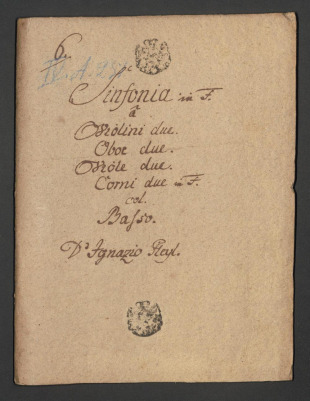 6.
IV. A. 28
Sinfonia in F.
â
Violini due.
Oboe due.
Viole due.
Corni due in F.
col.
Basso.
Dᵃ Ignazio Pleyl.